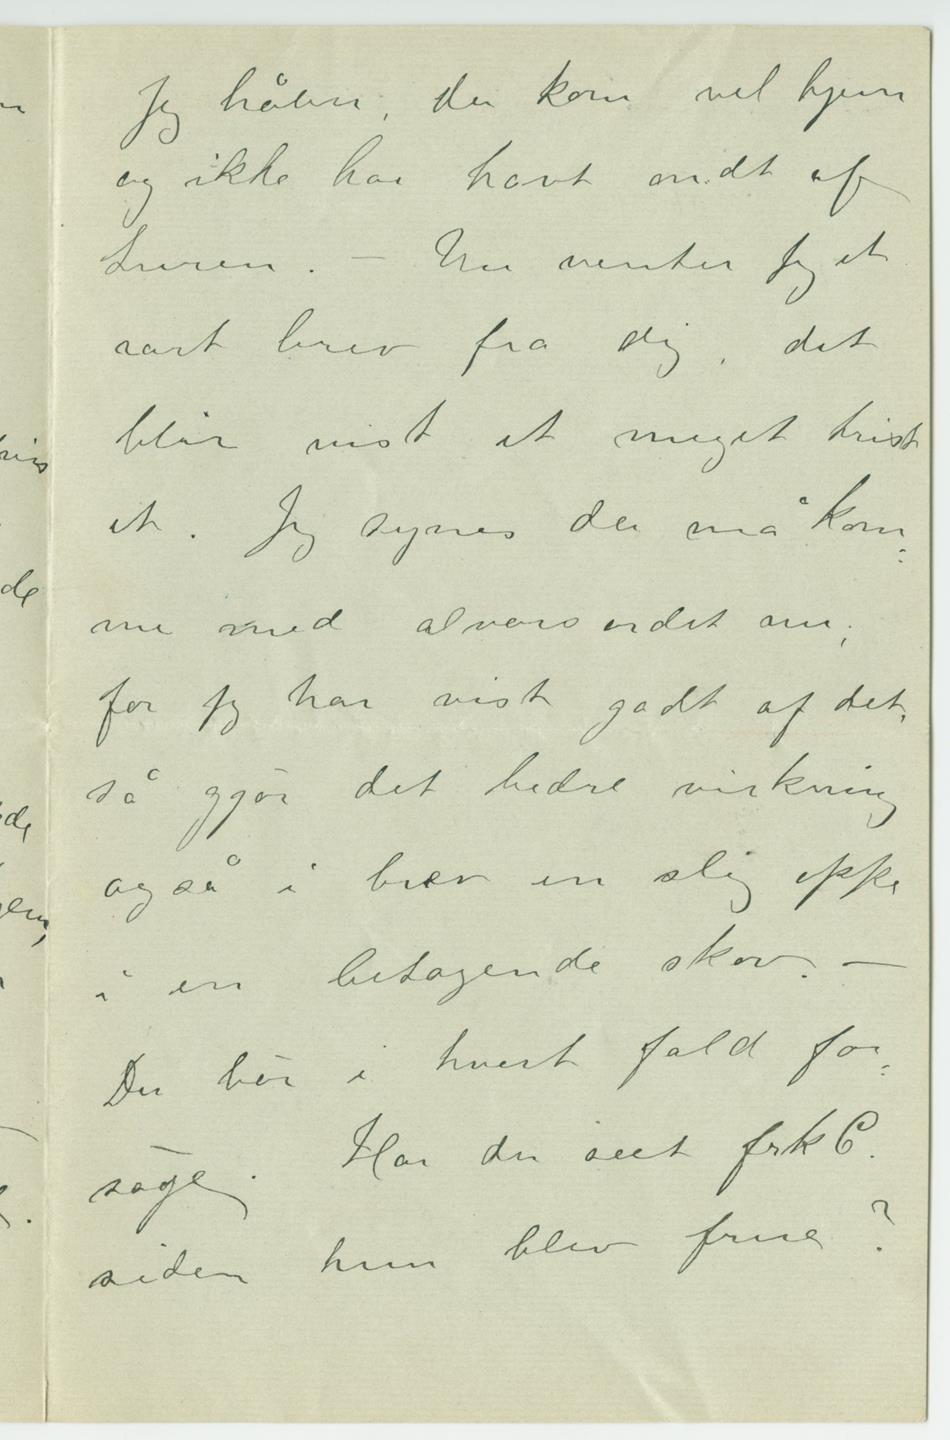 Jeg håber, du kom vel hjem
og ikke har havt ondt af
turen. – Nu venter jeg et
rart brev fra dig, det
blir vist et meget trist
et. Jeg synes du må kom:
me med alvorsordet nu,
for jeg har vist godt af det,
så gjör det bedre virkning
også i brev en slig
i en betagende skov. –
Du bör i hvert fald for:
söge. Har du seet frk C.
siden hun blev frue?